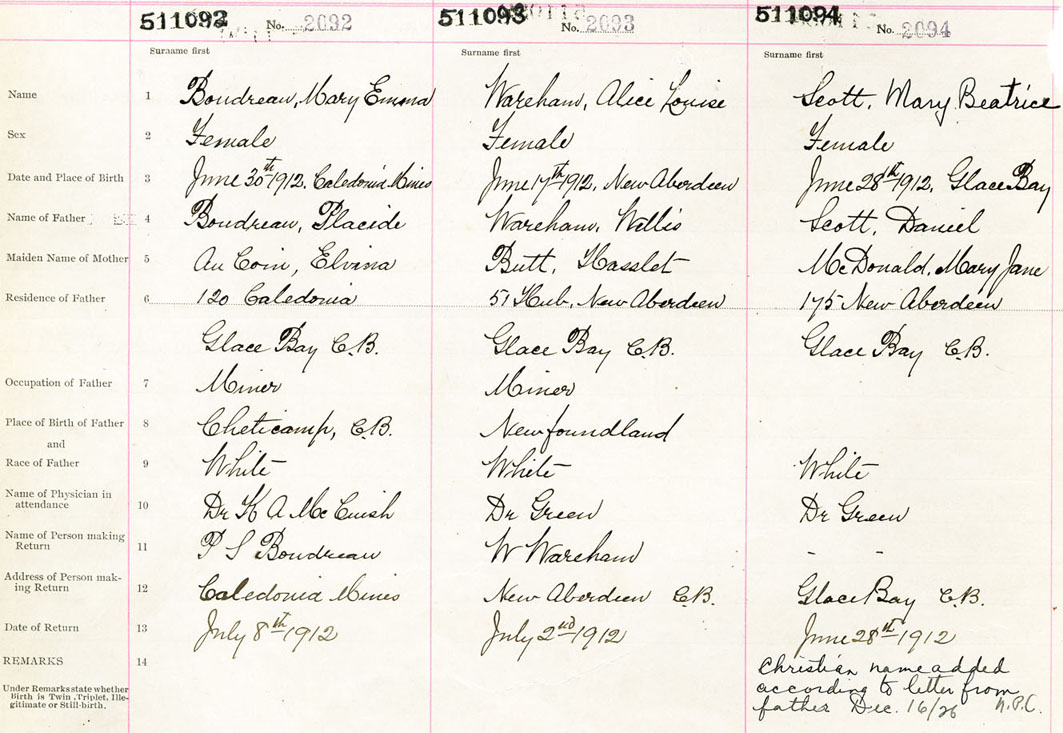 511092 No. 2092 511093 No. 2093 511094 No. 2094
Surname first Surname first Surname first
Name 1 Boudreau, Mary Emma Wareham, Alice Louise Scott, Mary Beatrice
Sex 2 Female Female Female
Date and Place of Birth 3 June 30th 1912, Caledonia Mines June 17th 1912, New Aberdeen June 28th 1912, Glace Bay
Name of Father 4 Boudreau, Placide Wareham, Willis Scott, Daniel
Maiden Name of Mother 5 Au Coin, Elvina Butt, Hasslet McDonald, Mary Jane
Residence of Father 6 120 Caledonia 51 Hub, New Aberdeen 175 New Aberdeen
Glace Bay C.B. Glace Bay C.B. Glace Bay C.B.
Occupation of Father 7 Miner Miner
Place of Birth of Father 8 Cheticamp, C.B. Newfoundland
and
Race of Father 9 White White White
Name of Physician in
attendance 10 Dr K A McCuish Dr Green Dr Green
Name of Person making
Return 11 P S Boudreau W Wareham - -
Address of Person mak-
ing Return 12 Caledonia Mines New Aberdeen C.B. Glace Bay C.B.
Date of Return 13 July 8th 1912 July 2nd 1912 June 28th 1912
REMARKS 14
Under Remarks state whether
Birth is Twin, Triplet, Ille-
gitimate or Still-birth.
Christian name added
according to letter from
father Dec. 16/26 N.P.C.